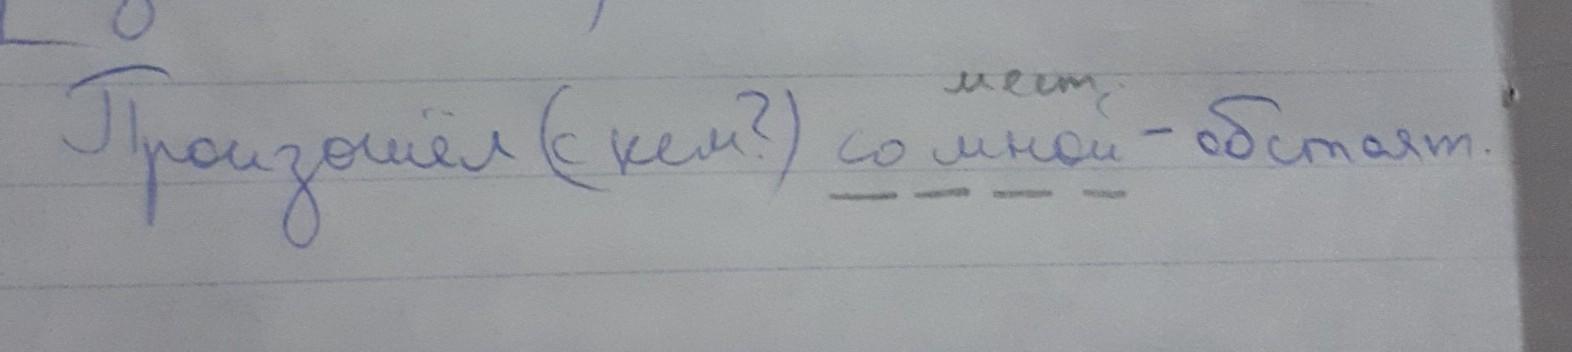 мест.
Произошёл (с кем?) со мной - обстоят.